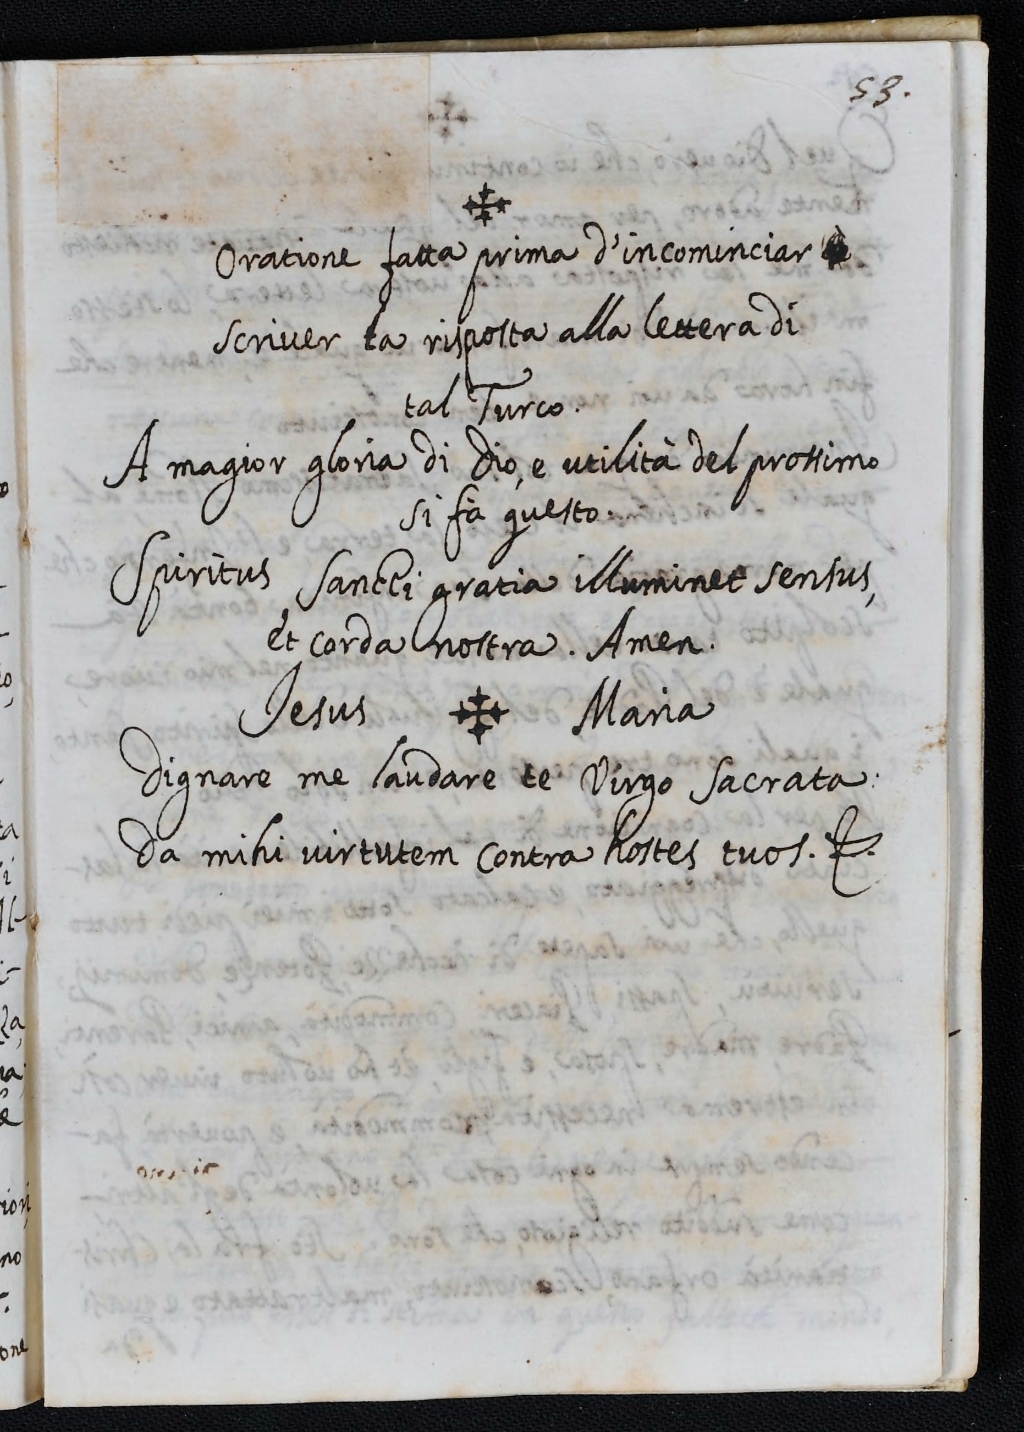 53.
✣
Oratione fatta prima d'incominciar
scriuer la risposta alla lettera di
tal Turco.
A magior gloria di Dio, e utilità del prossimo
si fa questo.
Spiritus Sancti gratia illuminet sensus,
et corda nostra. Amen.
Jesus ✣ Maria
Dignare me laudare te Virgo Sacrata:
Da mihi uirtutem contra hostes tuos.